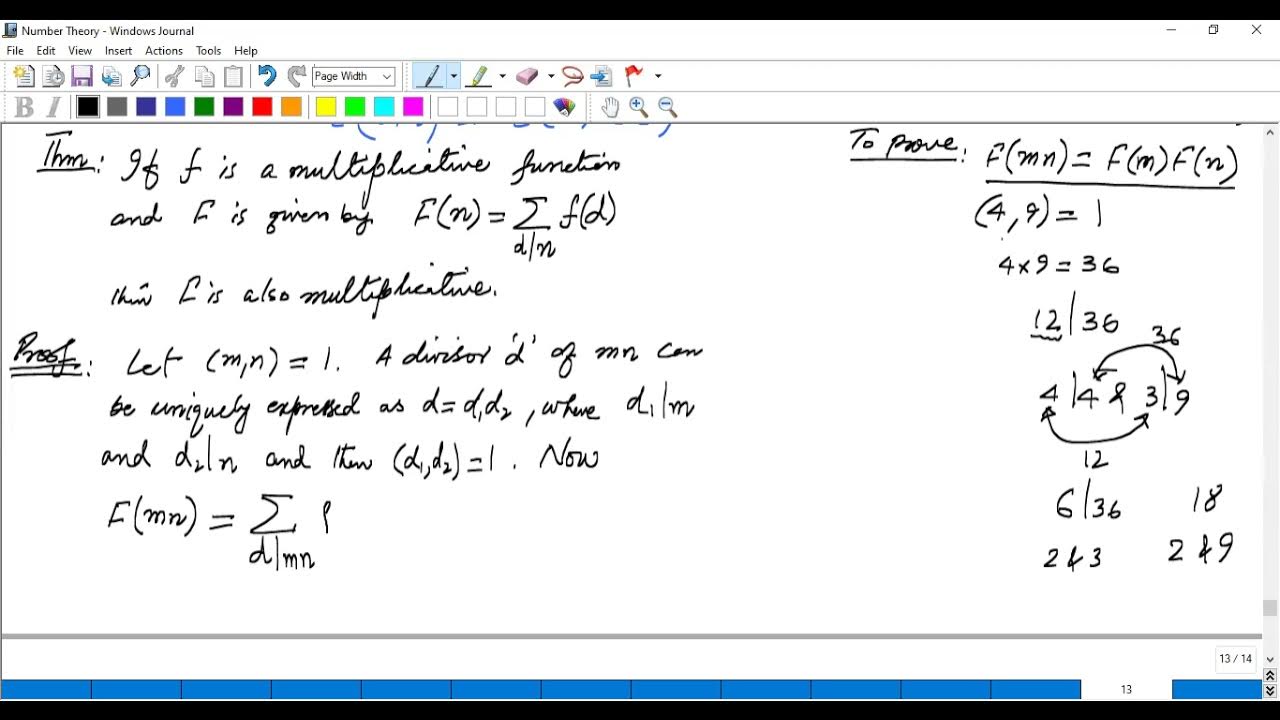 Number Theory - Windows Journal
File Edit View Insert Actions Tools Help
Page Width
B I
Thm: If f is a multiplicative function
and F is given by F(n) = ∑ f(d)
d|n
then F is also multiplicative.
Proof: Let (m,n) = 1. A divisor 'd' of mn can
be uniquely expressed as d = d₁d₂, where d₁|m
and d₂|n and then (d₁,d₂) = 1. Now
F(mn) = ∑
d|mn
To prove: F(mn) = F(m)F(n)
(4,9) = 1
4×9 = 36
12|36
36
4|4 & 3|9
12
6|36 18
2 & 3 2 & 9
13 / 14
13